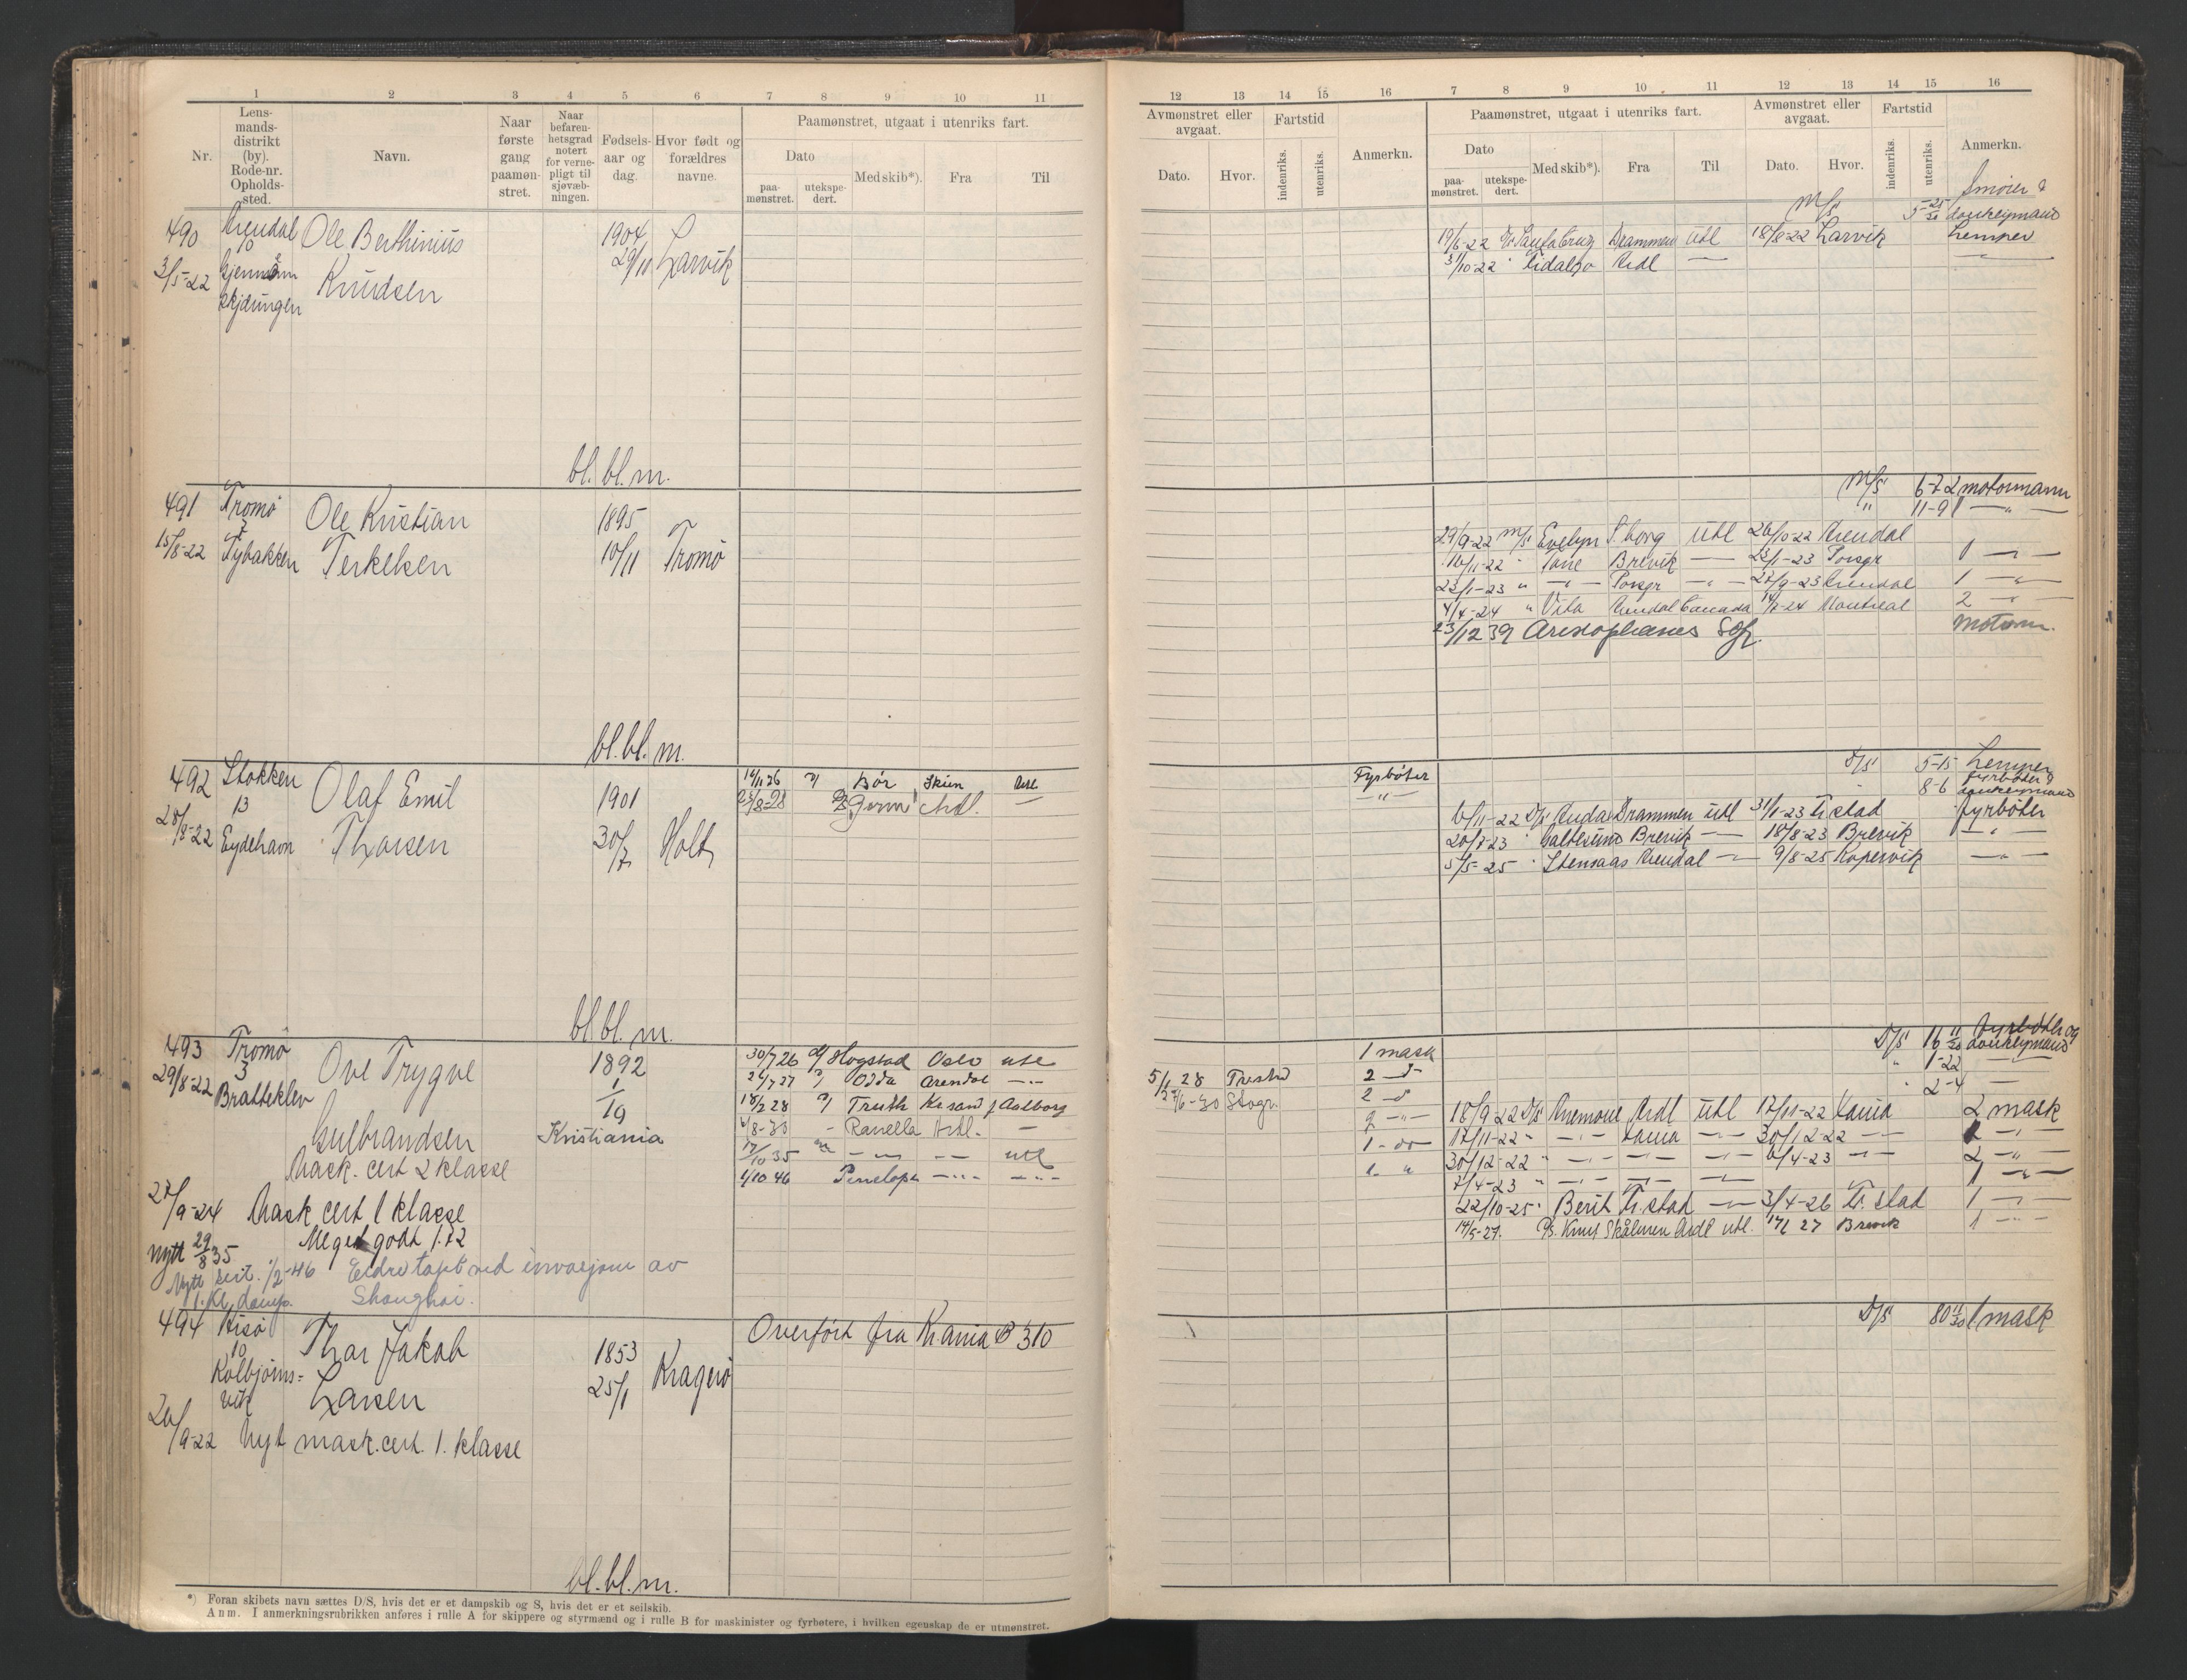 1 2 3 4 5 6 7 8 9 10 11
Nr.
Lens-
mands-
distrikt
(by).
Rode-nr.
Opholds-
sted.
Navn.
Naar
første
gang
paamøn-
stret.
Naar
befaren-
hetsgrad
notert
for verne-
pligt til
sjøvæb-
ningen.
Fødsels-
aar og
dag.
Hvor født og
forældres
navne.
Paamønstret, utgaat i utenriks fart.
Dato
paa-
mønstret.
utekspe-
dert.
Med skib*).
Fra
Til
490 Arendal Ole Berthinius 1904 Larvik
10 29/11
3/5-22 Knudsen
bl. bl. m.
491 Tromø Ole Kristian 1895
3
15/8-22 Tybakken Terkelsen 10/11 Tromø
bl. bl. m.
492 Stokken Olaf Emil 1901 14/11 26 Bør Skien Utl
13 23/8-28 Germ Ardl. —
28/8-22 Eydehavn Thorsen 30/7 Holt
bl. bl. m.
493 Tromø Ove Trygve 1892 30/7 26 Hogstad Oslo utl
3 1/19 26/7 27 Odda Arendal —"—
29/8-22 Bratteklev 18/2 28 Truth Kr sand f Aalborg
Gulbrandsen Kristiania 1/8-33 - Ranella Ardl. —
Mask. cert 2 klasse 17/10 35 — " — — utl
1/10 46 Penelope —"— —"—
27/9-24 Mask cert 1 klasse
Meget godt 1.72
Nytt 29/8 35
Nytt sert. 1/2-46 Eldre tapt ved invasjonen av
1. Kl. damp. Shanghai.
494 Hisø Thor Jakob 1853 Overført fra Krania B 310
10
Kolbjørns= 25/1 Kragerø
vik Larsen
26/9-22 Nyt mask. cert. 1. klasse
bl. bl. m.
*) Foran skibets navn sættes D/S, hvis det er et dampskib og S, hvis det er et seilskib.
Anm. I anmerkningsrubrikken anføres i rulle A for skippere og styrmænd og i rulle B for maskinister og fyrbøtere, i hvilken egenskap de er utmønstret.
12 13 14 15 16 7 8 9 10 11 12 13 14 15 16
Avmønstret eller
avgaat.
Dato.
Hvor.
Fartstid
indenriks.
utenriks.
Anmerkn.
Paamønstret, utgaat i utenriks fart.
Dato
paa-
mønstret.
utekspe-
dert.
Med skib*).
Fra
Til
Avmønstret eller
avgaat.
Dato.
Hvor.
Fartstid
indenriks.
utenriks.
Anmerkn.
Smører &
M/S 5-25/30 donkeymand
19/6-22 Santa Cruz Drammen Utl 18/8-22 Larvik Lemper
3/10-22 " Hidalgo Ardl — —"—
M/S 6-22 motormann
" 11-9 —"—
29/9-22 M/S Evelyn S.borg Utl 26/10-22 Arendal
16/11-22 " Tone Brevik — 23/1-23 Porsgr 1 —"—
23/1-23 " —"— Porsgr —"— 22/9-23 Arendal 1 —"—
4/4-24 " Vila Arendal Canada 14/7-24 Montreal 2 —"—
23/12 39 Aristophanes Motorm.
Fyrbøter D/S 5-15 Lemper
—"— 8-6 fyrbøter & donkeymand
6/11-22 D/S Drammen Utl 31/1-23 Fr stad fyrbøter
20/7-23 " Brevik — 18/8-23 Brevik —"—
5/5-25 " Stensaas Arendal — 9/8-25 Kopervik —"—
D/S 16 11/30 fyrbøter og donkeymand
1 mask " 1-22 —
5/1 28 Trestad 2 —"— " 2-4 —
27/6-30 Stogr. 2 —"—
2 —"— 18/9-22 D/S Anemone Ardl Utl 17/11-22 Kania 2 mask
1 - do 17/11-22 " —"— Kania — 30/12-22 —"— 2 —"—
1 " 30/12-22 " —"— —"— —"— 6/4-23 —"— 2 —"—
7/4-23 " —"— —"— —"— 1 —"—
22/10-25 " Berit Fr.stad — 3/4-26 Fr. stad 1 —"—
14/5-27. D/S. Knut Skåluren Ardl utl. 17/6 27 Brevik 1 —"—
D/S 80 11/30 1 mask